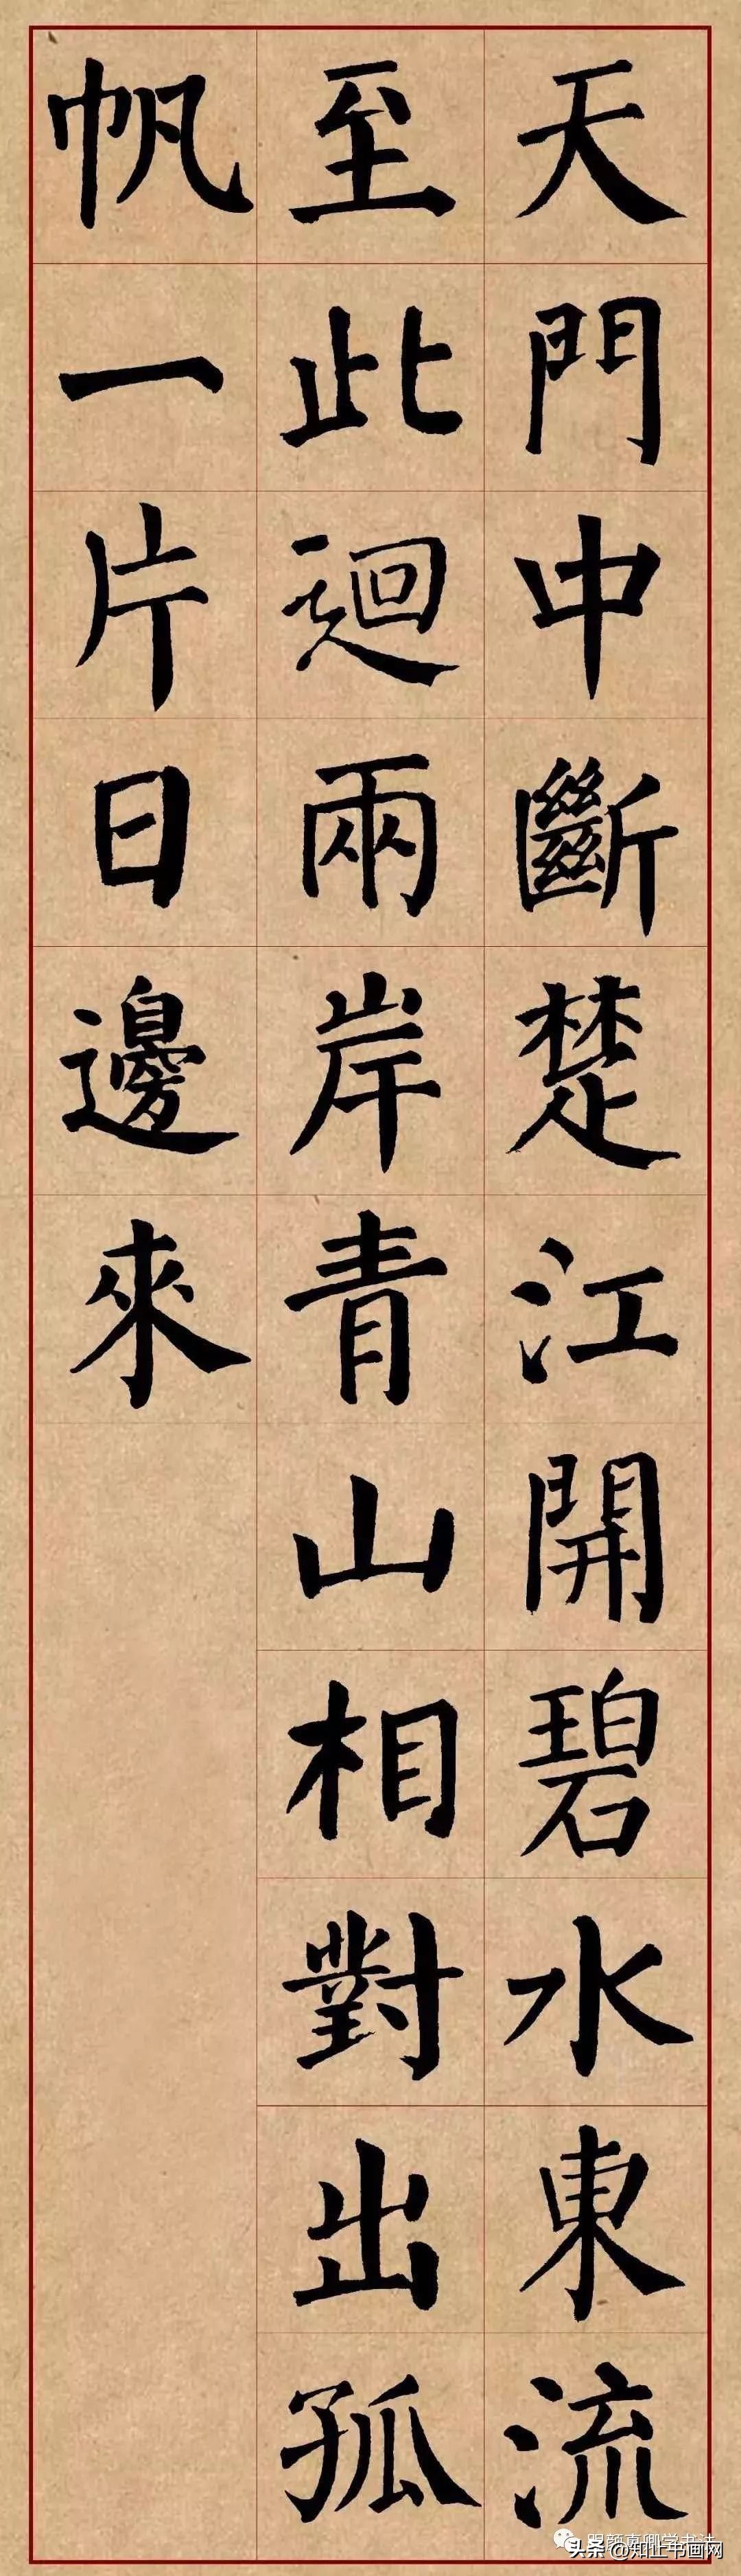 天門中斷楚江開碧水東流
至此迴兩岸青山相對出孤
帆一片日邊來
跟颜真卿学书法
头条 @知止书画网